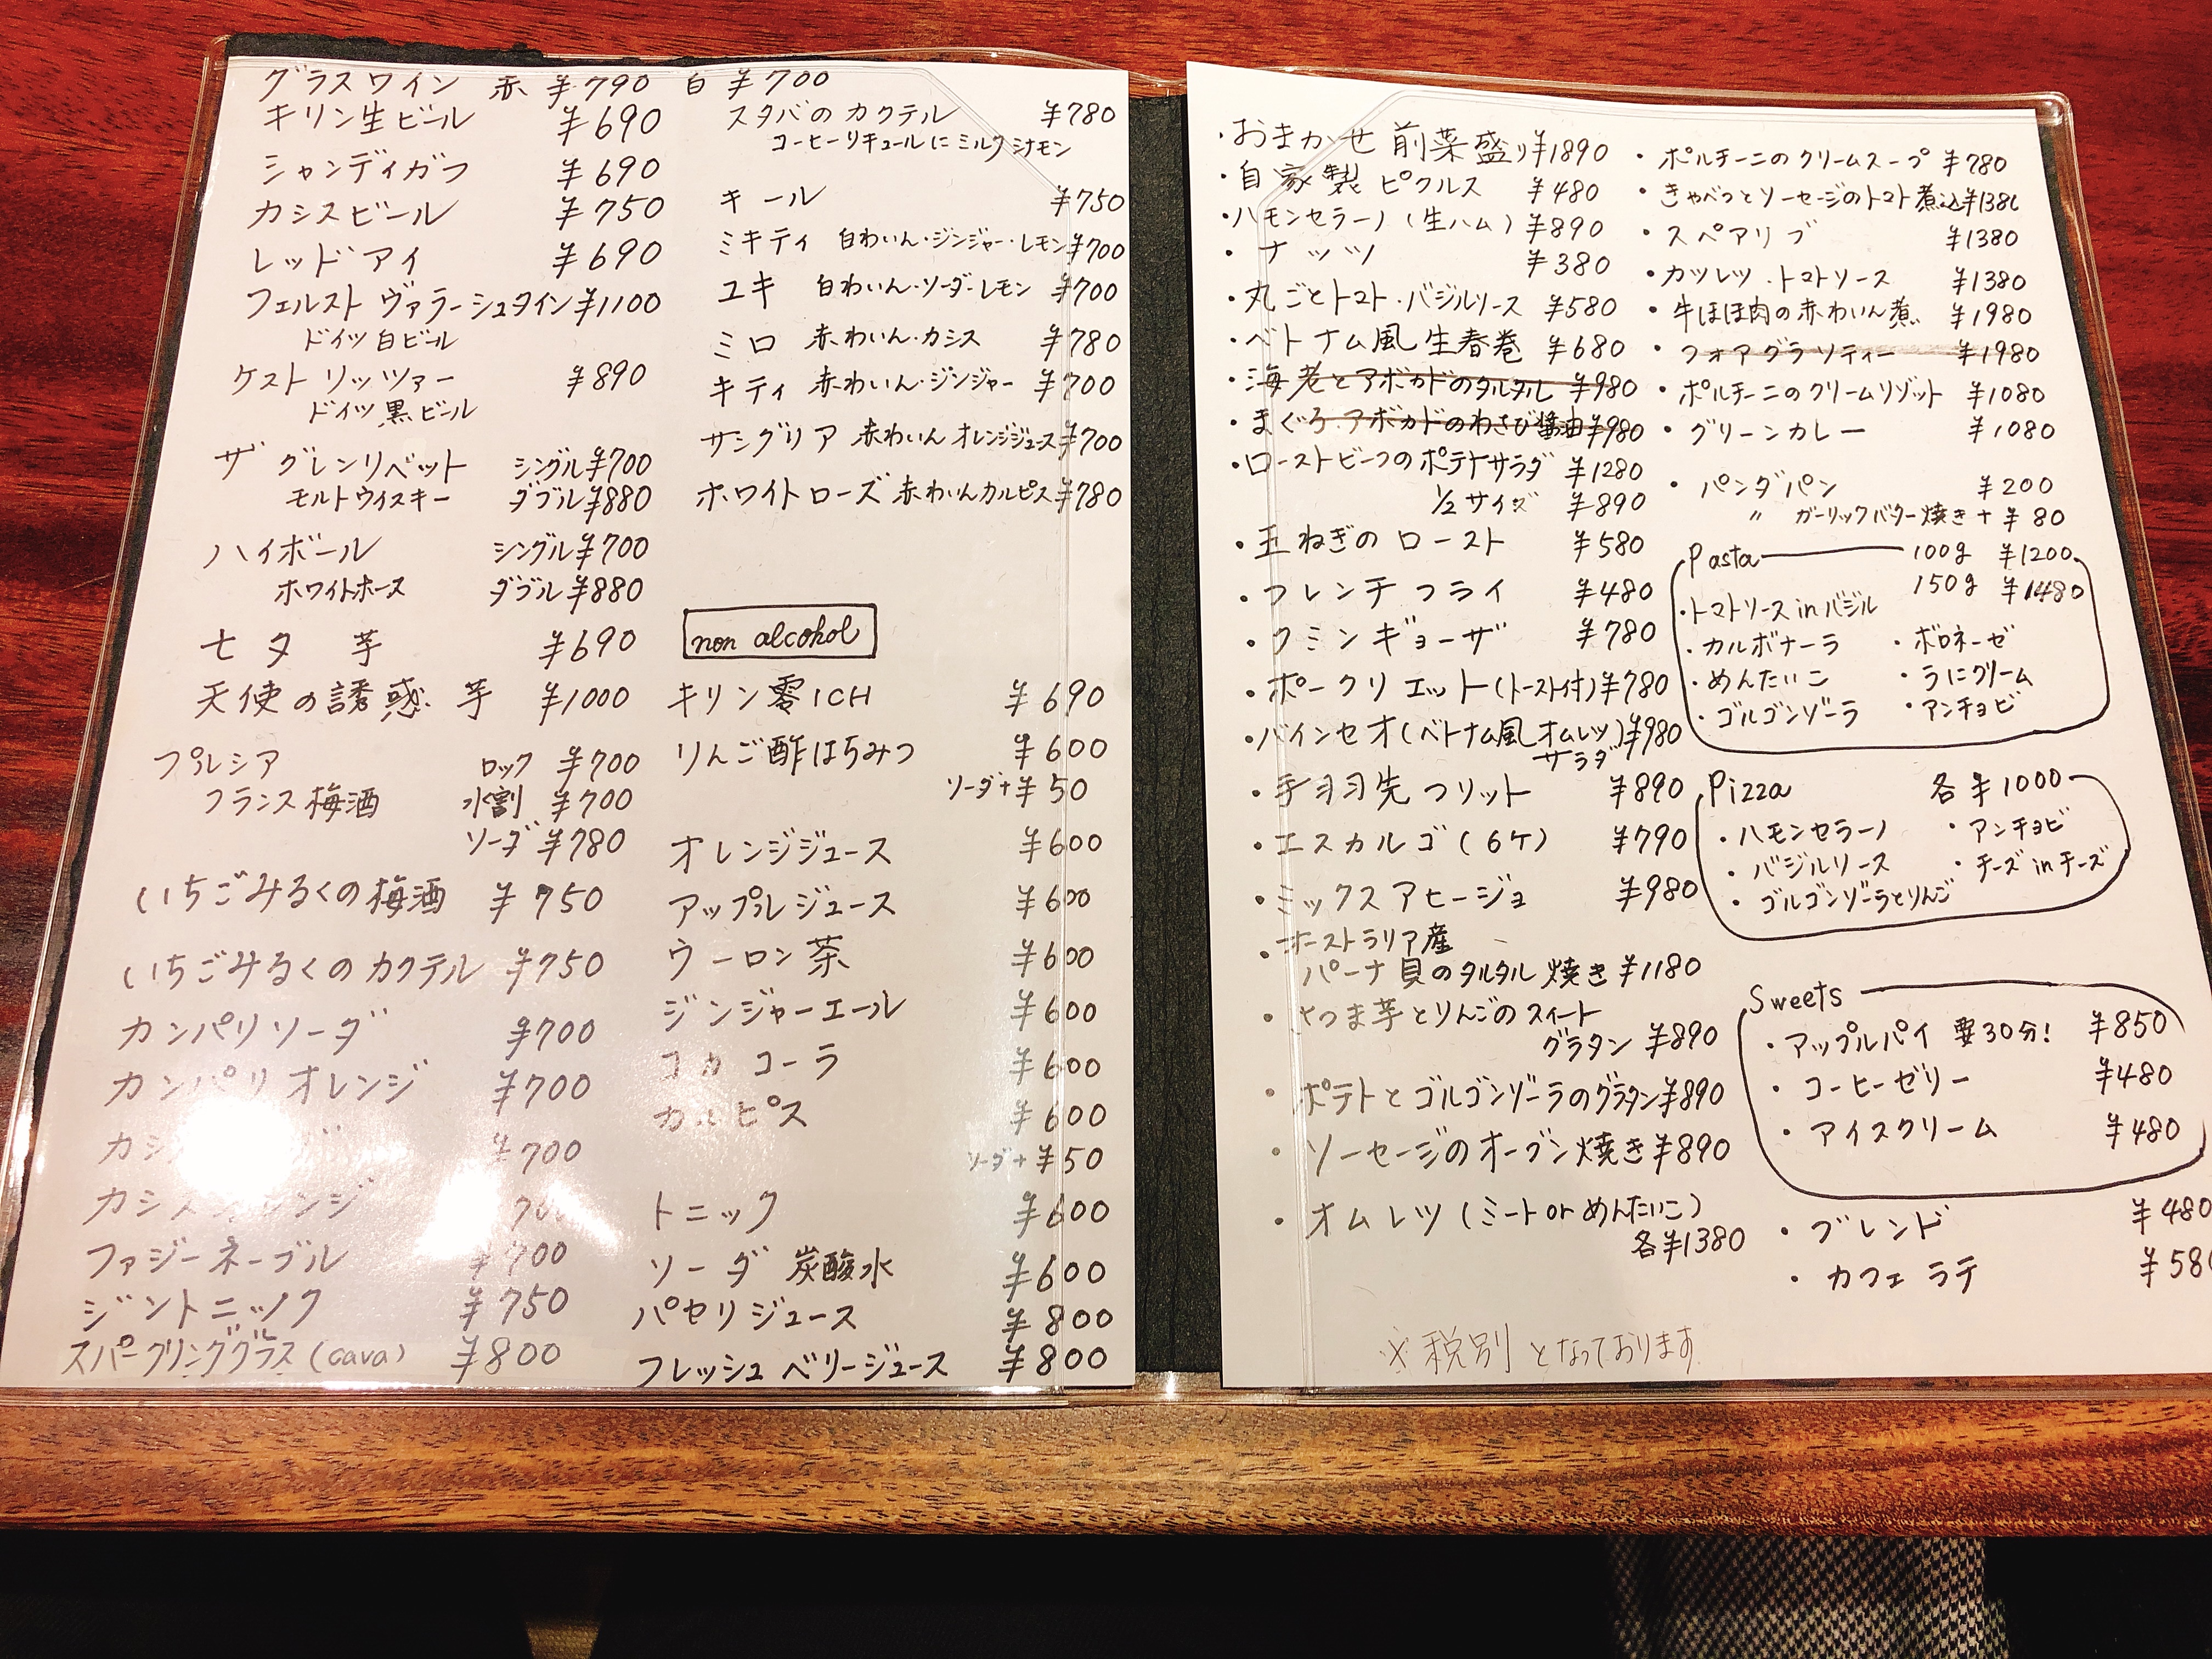 グラスワイン 赤 ¥790 白 ¥700
キリン生ビール ¥690
シャンディガフ ¥690
カシスビール ¥750
レッドアイ ¥690
フェルスト ヴァラーシュタイン ¥1100
ドイツ白ビール
ケストリッツァー ¥890
ドイツ黒ビール
ザ グレンリベット シングル¥700
モルトウイスキー ダブル¥880
ハイボール シングル¥700
ホワイトホース ダブル¥880
七夕 芋 ¥690
天使の誘惑 芋 ¥1000
プルシア ロック ¥700
フランス梅酒 水割 ¥700
ソーダ ¥780
いちごみるくの梅酒 ¥750
いちごみるくのカクテル ¥750
カンパリソーダ ¥700
カンパリオレンジ ¥700
¥700
カシスオレンジ 700
ファジーネーブル ¥700
ジントニック ¥750
スパークリンググラス(cava) ¥800
スタバのカクテル ¥780
コーヒーリキュールにミルクシナモン
キール ¥750
ミキティ 白わいん・ジンジャー・レモン¥700
ユキ 白わいん・ソーダ・レモン ¥700
ミロ 赤わいん・カシス ¥780
キティ 赤わいん・ジンジャー ¥700
サングリア 赤わいん オレンジジュース¥700
ホワイトローズ 赤わいんカルピス¥780
non alcohol
キリン零ICH ¥690
りんご酢はちみつ ¥600
ソーダ+¥50
オレンジジュース ¥600
アップルジュース ¥600
ウーロン茶 ¥600
ジンジャーエール ¥600
コカコーラ ¥600
カルピス ¥600
ソーダ+¥50
トニック ¥600
ソーダ 炭酸水 ¥600
パセリジュース ¥800
フレッシュベリージュース ¥800
・おまかせ前菜盛り¥1890
・自家製ピクルス ¥480
・ハモンセラーノ(生ハム) ¥890
・ナッツ ¥380
・丸ごとトマト・バジルソース ¥580
・ベトナム風生春巻 ¥680
・海老とアボカドのタルタル ¥980
・まぐろ・アボカドのわさび醤油¥980
・ローストビーフのポテトサラダ ¥1280
1/2サイズ ¥890
・玉ねぎのロースト ¥580
・フレンチフライ ¥480
・クミンギョーザ ¥780
・ポークリエット(トースト付)¥780
・バインセオ(ベトナム風オムレツ)¥980
サラダ
・手羽先フリット ¥890
・エスカルゴ(6ケ) ¥790
・ミックスアヒージョ ¥980
・オーストラリア産
パーナ貝のタルタル焼き¥1180
・さつま芋とりんごのスイート
グラタン ¥890
・ポテトとゴルゴンゾーラのグラタン¥890
・ソーセージのオーブン焼き¥890
・オムレツ(ミート or めんたいこ)
各¥1380
・ポルチーニのクリームスープ ¥780
・きゃべつとソーセージのトマト煮込¥1380
・スペアリブ ¥1380
・カツレツ・トマトソース ¥1380
・牛ほほ肉の赤わいん煮 ¥1980
・フォアグラソティー ¥1980
・ポルチーニのクリームリゾット ¥1080
・グリーンカレー ¥1080
・パンダパン ¥200
〃 ガーリックバター焼き+¥80
Pasta 100g ¥1200
150g ¥1480
・トマトソース in バジル
・カルボナーラ ・ボロネーゼ
・めんたいこ ・うにクリーム
・ゴルゴンゾーラ ・アンチョビ
Pizza 各¥1000
・ハモンセラーノ ・アンチョビ
・バジルソース ・チーズ in チーズ
・ゴルゴンゾーラとりんご
Sweets
・アップルパイ 要30分! ¥850
・コーヒーゼリー ¥480
・アイスクリーム ¥480
・ブレンド ¥480
・カフェラテ ¥580
※税別となっております